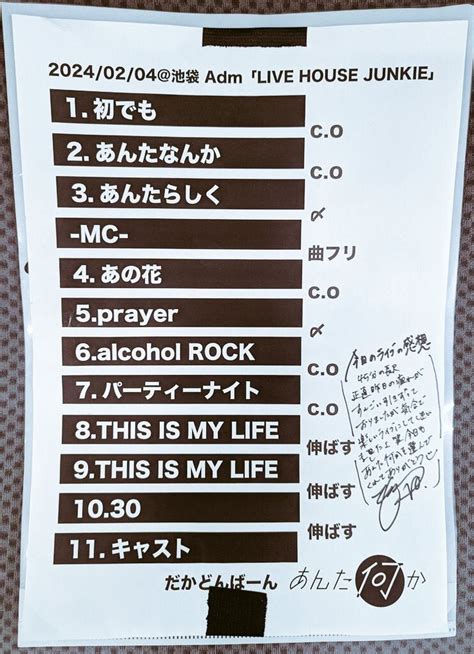 2024/02/04@池袋 Adm「LIVE HOUSE JUNKIE」
1.初でも
C.O
2.あんたなんか
C.O
3.あんたらしく
〆
-MC-
曲フリ
4.あの花
C.O
5.prayer
〆
6.alcohol ROCK
C.O
7.パーティーナイト
C.O
8.THIS IS MY LIFE
伸ばす
9.THIS IS MY LIFE
伸ばす
10.30
伸ばす
11.キャスト
今日のライブの感想
45分の長尺
正直昨日の疲れが
だかどんばーん あんた何か